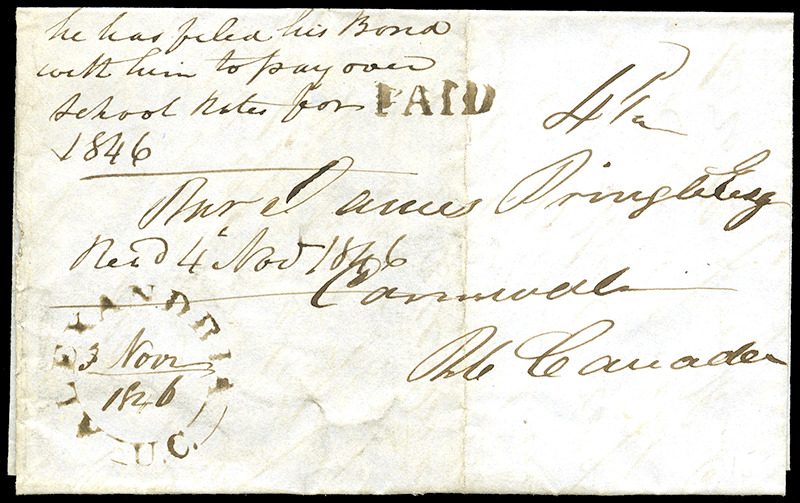 he has filed his Bond
with him to pay over
School Rates for
1846
PAID
4½
James Pringle Esq
Recd 4 Nov 1846
Cornwall
Canada
ALEXANDRIA
3 Novr
1846
U.C.